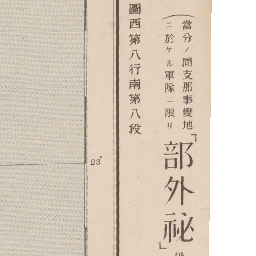 (當分ノ間支那事變地
ニ於ケル軍隊ニ限リ
「部外祕」
圖西第八行南第八段
23°